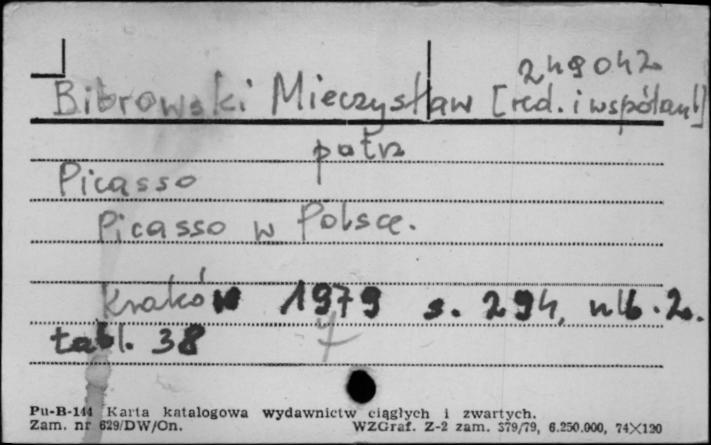 249042
Bibrowski Mieczysław [red. i współaut]
patrz
Picasso
Picasso w Polsce.
Kraków 1979 s. 294, nlb. 2.
tabl. 38
Pu-B-144 Karta katalogowa wydawnictw ciągłych i zwartych.
Zam. nr 629/DW/On. WZGraf. Z-2 zam. 379/79, 6.250.000, 74X120